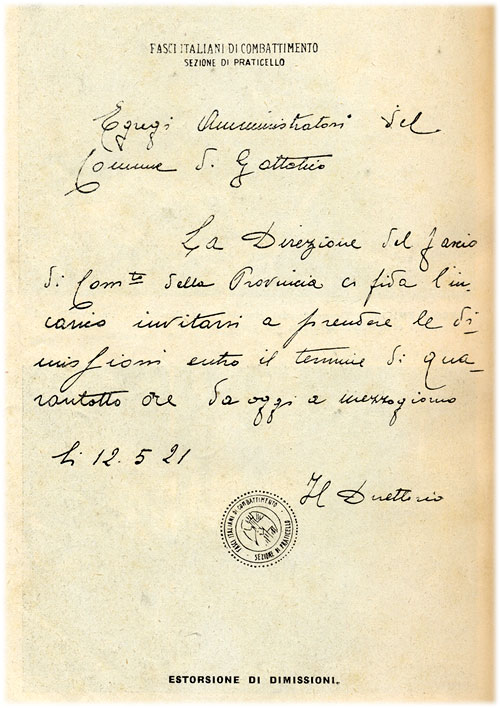 FASCI ITALIANI DI COMBATTIMENTO
SEZIONE DI PRATICELLO
Egregi Amministratori del
Comune di Gattatico
La Direzione del fascio
di Com.to della Provincia ci fida l'in-
carico invitarsi a prendere le di-
missioni entro il termine di qua-
rantotto ore da oggi a mezzogiorno
li 12.5.21
Il Direttorio
FASCI ITALIANI DI COMBATTIMENTO
SEZIONE DI PRATICELLO
ESTORSIONE DI DIMISSIONI.